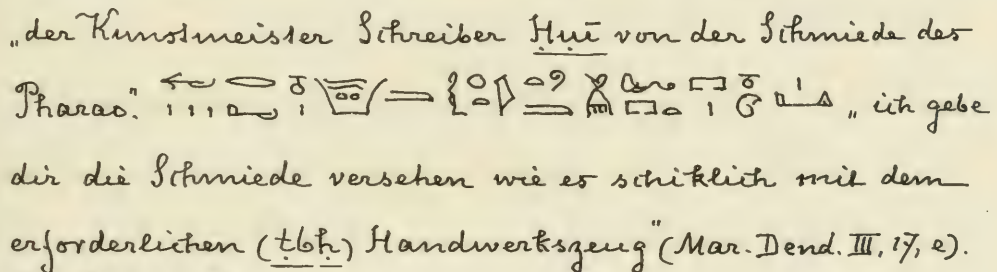 „der Kunstmeister Schreiber Huī von der Schmiede des
Pharao." „ich gebe
dir die Schmiede versehen wie es schiklich mit dem
erforderlichen (tbḥ) Handwerkszeug" (Mar. Dend. III, 17, e).